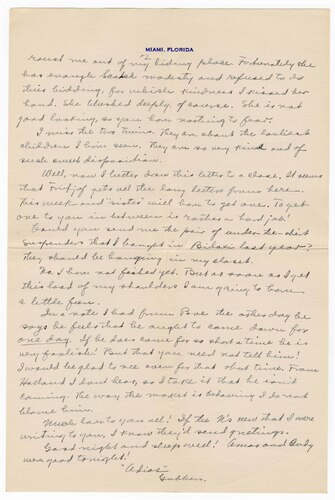 MIAMI, FLORIDA
roust me out of my hiding place. Fortunately she
has enough Scotch modesty and refused to do
this bidding, for which kindness I kissed her
hand. She blushed deeply, of course. She is not
good looking, so you have nothing to fear.
I miss the two twins. They are about the loveliest
children I have seen. They are so very kind and of
such sweet disposition.
Well, now I better draw this letter to a close. It seems
that gets all the long letters from here.
This week and "sister" will have to get one. To get
one to you in between is rather a hard job!
Could you send me the pair of under-the-shirt
suspenders that I bought in Biloxi last year?
They should be hanging in my closet.
No, I have not fished yet. But as soon as I get
this load off my shoulders I am going to have
a little fun.
In a note I had from the other day he
says he feels that he ought to come down for
one day. If he does come for so short a time he is
very foolish! But that you need not tell him!
I would be glad to see even for that short time. From
Holland I don't hear, so I take it that he isn't
coming. The way the market is behaving I do not
blame him.
Much love to you all! If the N's knew that I was
writing to you, I know they'd send greetings.
Good night and sleep well! Amos and Andy
were good tonight!
"Adios"